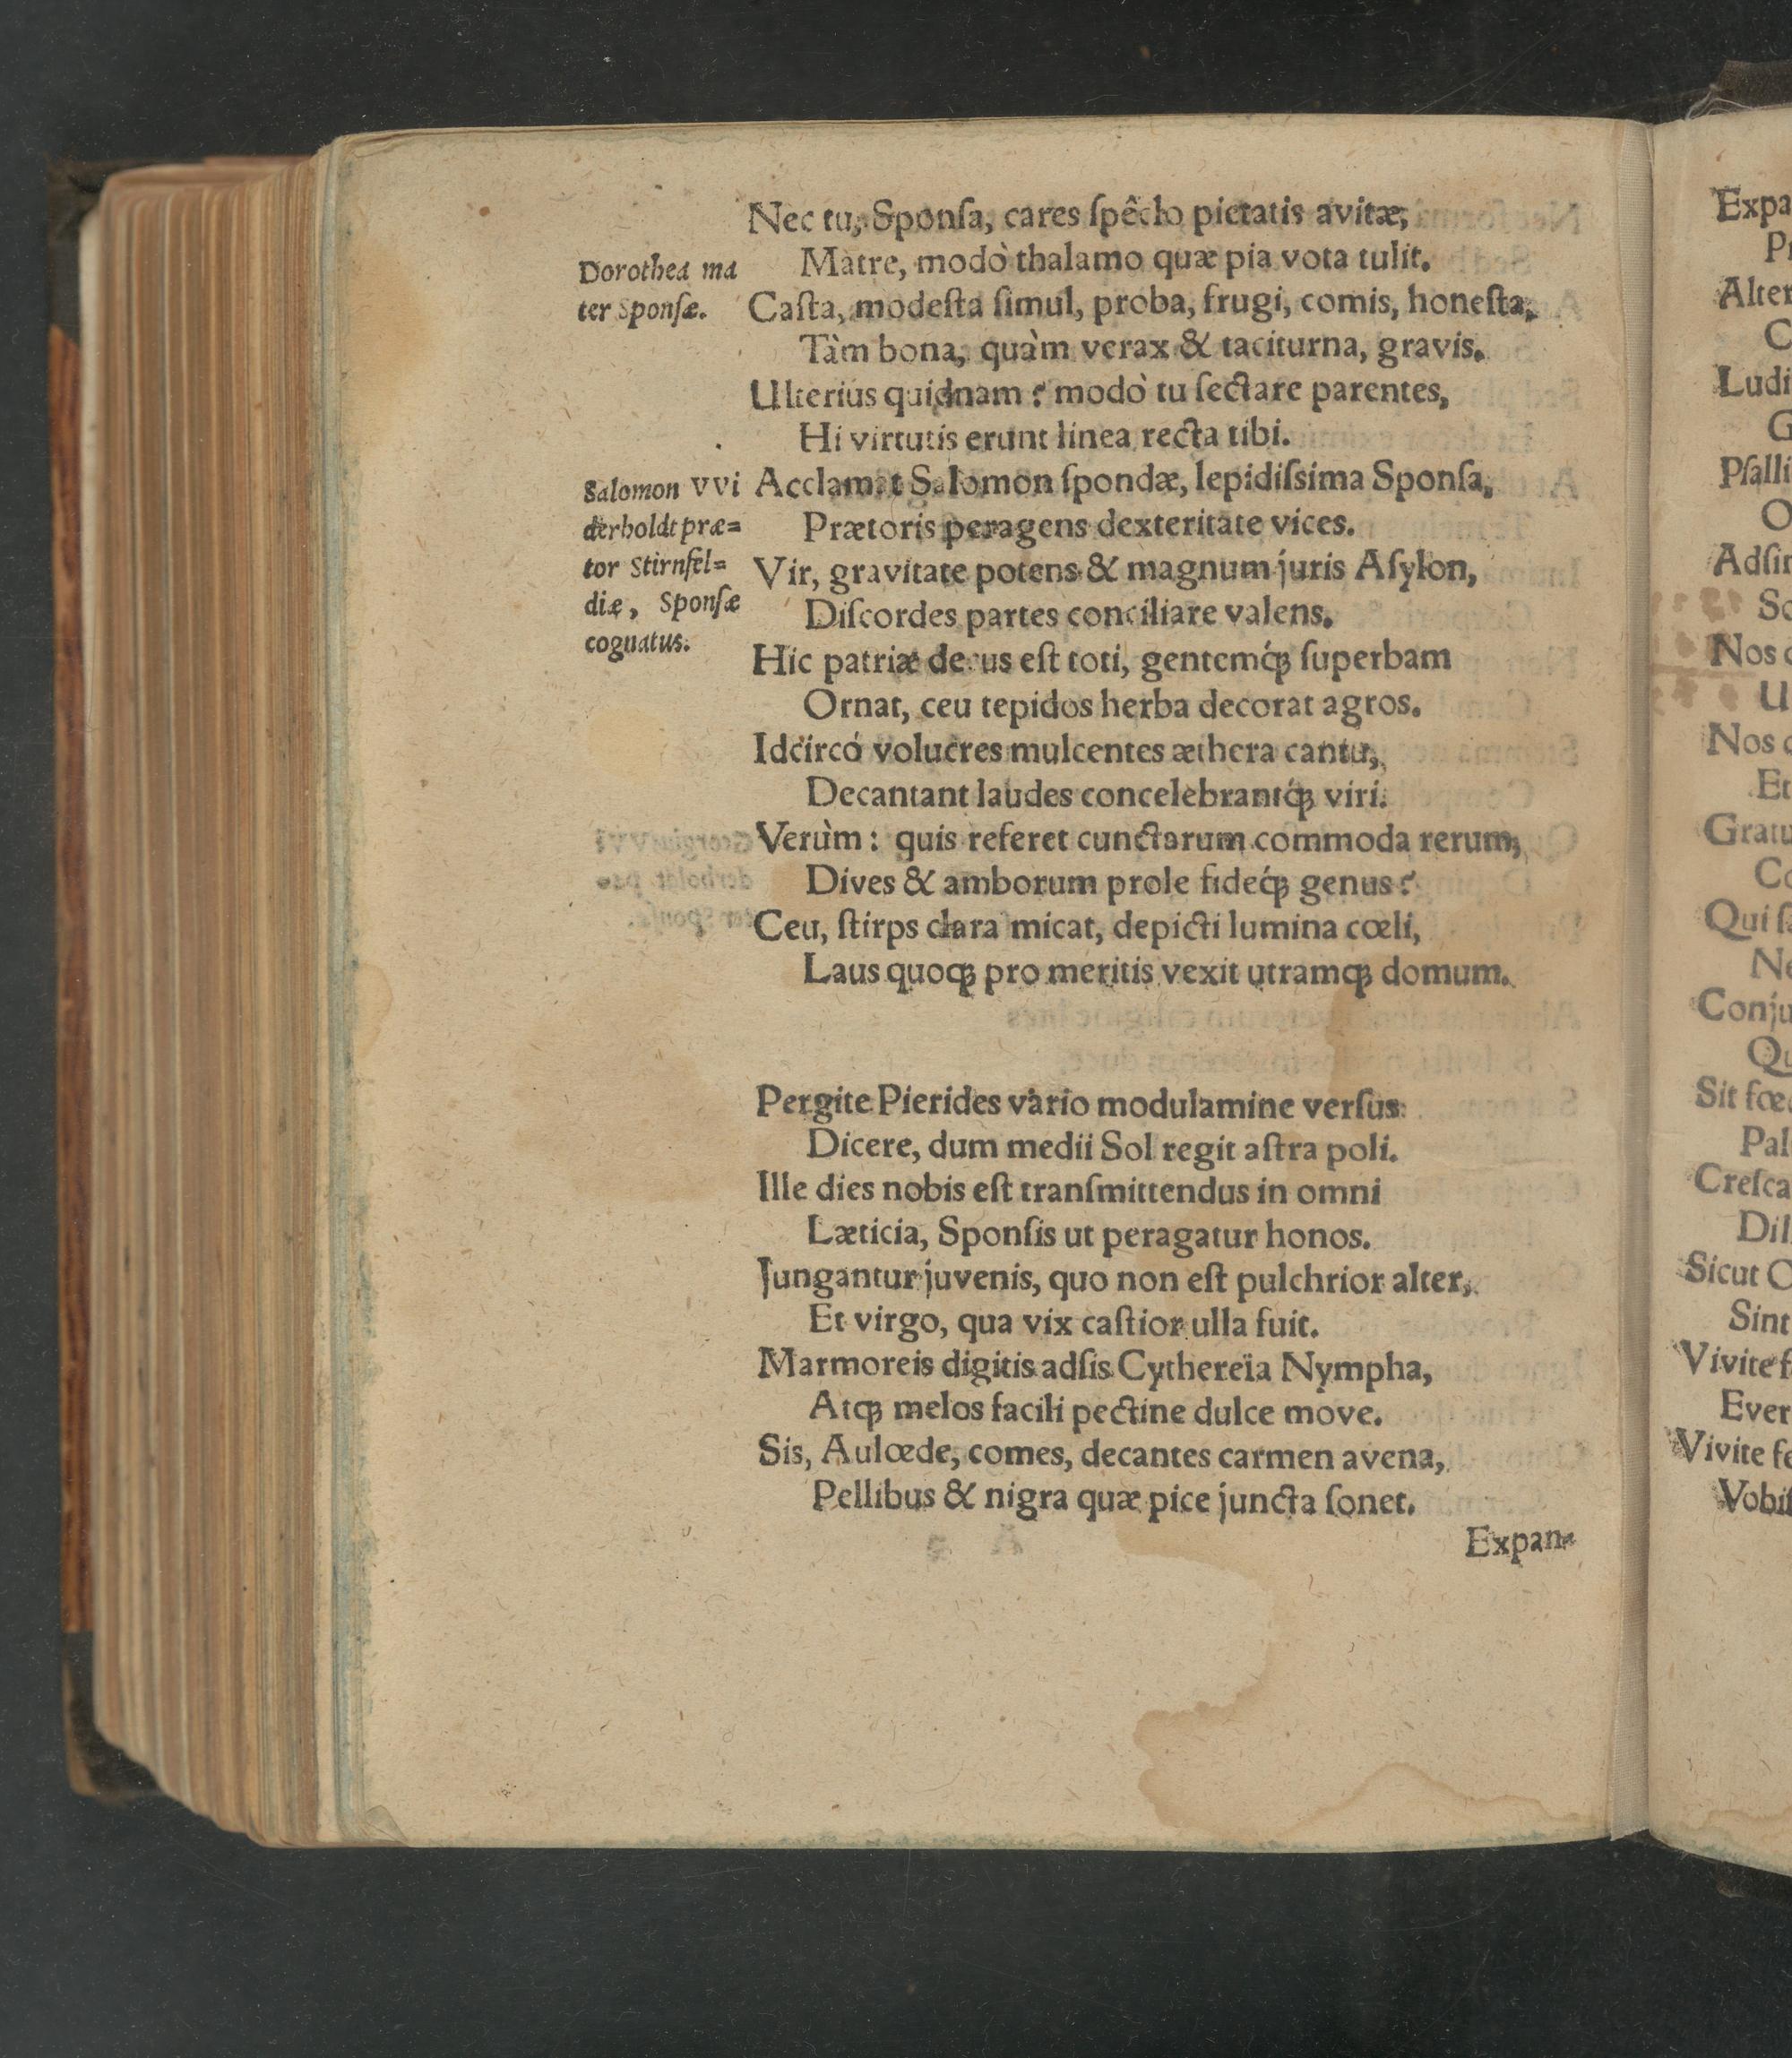 Nec tu, Sponſa, cares ſpêclo pietatis avitæ,
Dorothea ma
ter Sponſæ.
Matre, modò thalamo quæ pia vota tulit.
Caſta, modeſta ſimul, proba, frugi, comis, honeſta,
Tàm bona, quàm verax & taciturna, gravis.
Ulterius quidnam? modò tu ſectare parentes,
Hi virtutis erunt linea recta tibi.
Salomon VVi
derholdt præ=
tor Stirnfel=
diæ, Sponſæ
cognatus.
Acclamat Salomon ſpondæ, lepidiſsima Sponſa,
Prætoris peragens dexteritate vices.
Vir, gravitate potens & magnum juris Aſylon,
Diſcordes partes conciliare valens.
Hic patriæ decus eſt toti, gentemq́ꝫ ſuperbam
Ornat, ceu tepidos herba decorat agros.
Idcircó volucres mulcentes æthera cantu,
Decantant laudes concelebrantq́ꝫ viri.
Verùm: quis referet cunctarum commoda rerum,
Dives & amborum prole fideq́ꝫ genus?
Ceu, ſtirps clara micat, depicti lumina cœli,
Laus quoqꝫ pro meritis vexit utramqꝫ domum.
Pergite Pierides vario modulamine verſus
Dicere, dum medii Sol regit aſtra poli.
Ille dies nobis eſt tranſmittendus in omni
Læticia, Sponſis ut peragatur honos.
Jungantur juvenis, quo non eſt pulchrior alter,
Et virgo, qua vix caſtior ulla fuit.
Marmoreis digitis adſis Cythereïa Nympha,
Atqꝫ melos facili pectine dulce move.
Sis, Aulœde, comes, decantes carmen avena,
Pellibus & nigra quæ pice juncta ſonet.
Expan=
Expa
Alter
Ludi
Pſalli
Adſi
Nos
Nos
Et
Gratu
Co
Qui
Ne
Conju
Qu
Sit
Pal
Creſca
Dil
Sicut
Sint
Vivite
Ever
Vivite
Vobiſ